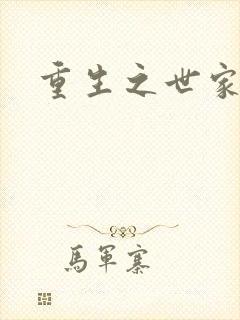 重生之世家
馬軍寨